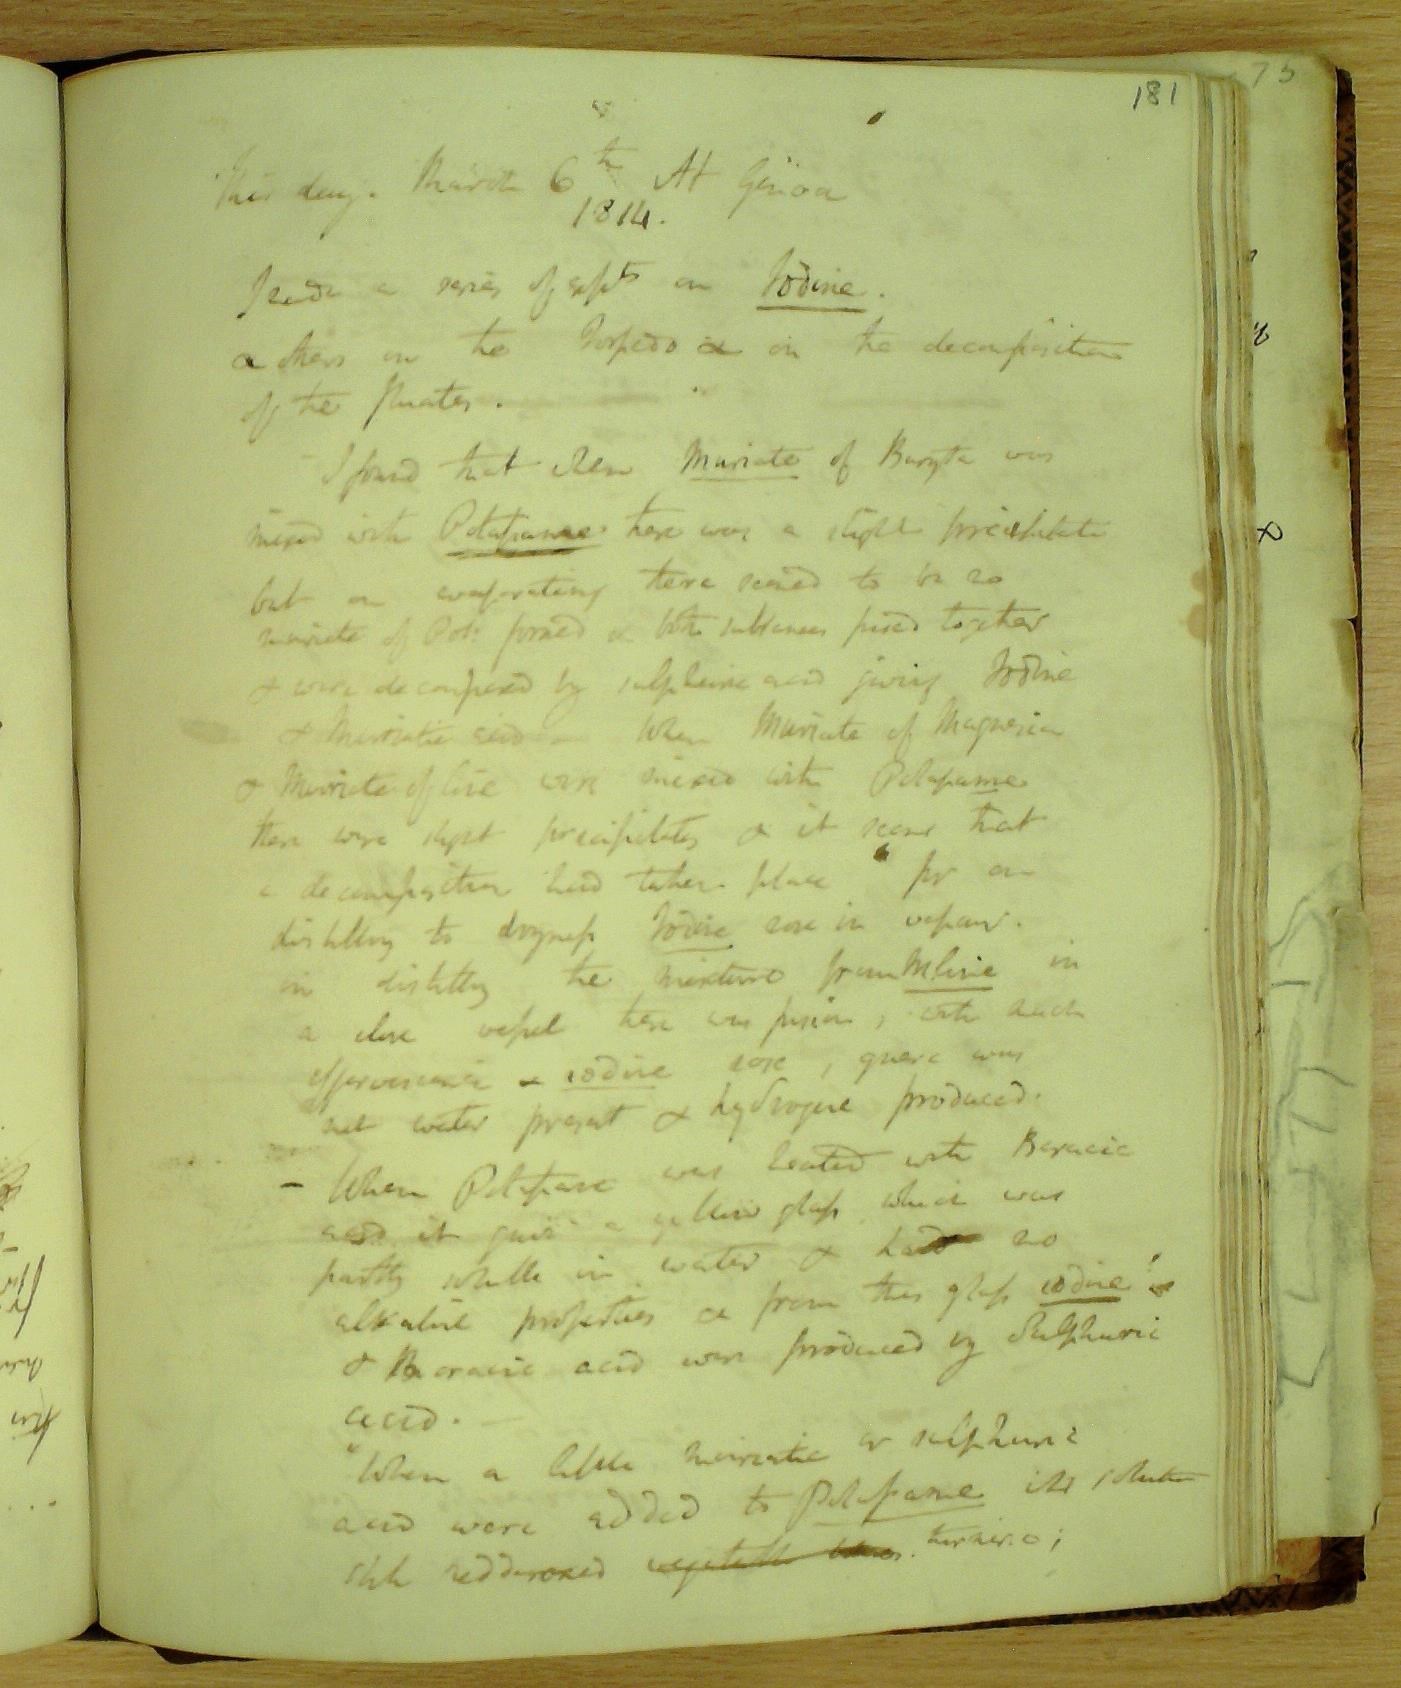 181
75
This day. March 6th At Genoa
1814.
I made a series of expts on Iodine.
& others on the Torpedo & on the decomposition
of the fluates.
I found that when Muriate of Baryta was
mixed with Potassame there was a slight precipitate
but on evaporating there seemed to be no
muriate of Pot: formed & both substances fused together
& were decomposed by sulphuric acid giving Iodine
& Muriatic acid – When Muriate of Magnesia
& Muriate of lime were mixed with Potassame
there were slight precipitates & it seems that
a decomposition had taken place for on
distilling to dryness Iodine rose in vapour.
in distilling the mixture from M lime in
a close vessel there was fusion, with much
effervescence & iodine rose, quere was
not water present & hydrogene produced.
– When Potassame was heated with Boracic
acid it gave a yellow glass which was
partly soluble in water & had no
alkaline properties & from this glass iodine
& Boracic acid were produced by Sulphuric
acid. –
When a little muriatic or sulphuric
acid were added to Potassame its solution
still reddened vegetable blues. turmeric;